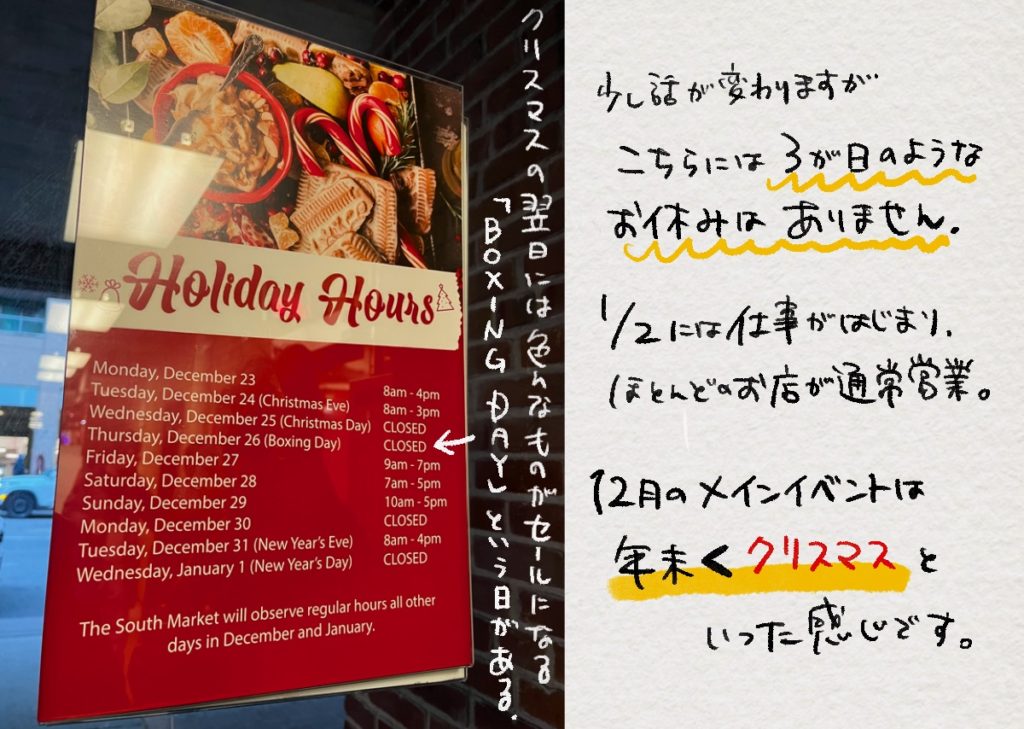 Holiday Hours
Monday, December 23 8am - 4pm
Tuesday, December 24 (Christmas Eve) 8am - 3pm
Wednesday, December 25 (Christmas Day) CLOSED
Thursday, December 26 (Boxing Day) CLOSED
Friday, December 27 9am - 7pm
Saturday, December 28 7am - 5pm
Sunday, December 29 10am - 5pm
Monday, December 30 CLOSED
Tuesday, December 31 (New Year's Eve) 8am - 4pm
Wednesday, January 1 (New Year's Day) CLOSED
The South Market will observe regular hours all other
days in December and January.
クリスマスの翌日には色々なものがセールになる
「BOXING DAY」という日がある.
少し話が変わりますが
こちらには 3が日のような
お休みは ありません.
1/2には仕事がはじまり、
ほとんどのお店が通常営業。
12月のメインイベントは
年末 < クリスマス と
いった感じです。